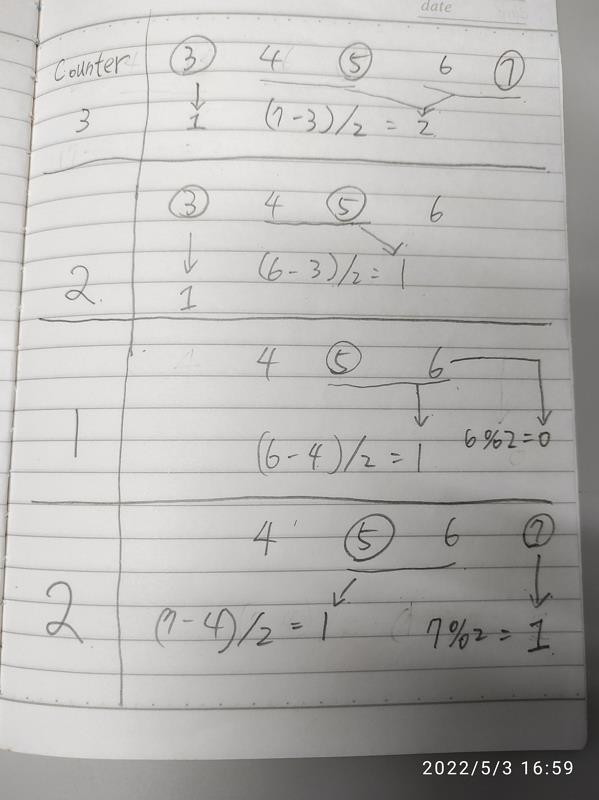 date
Counter 3 4 5 6 7
3 1 (7-3)/2 = 2
3 4 5 6
(6-3)/2 = 1
2. 1
4 5 6
1 (6-4)/2 = 1 6%2=0
4 5 6 7
2 (7-4)/2 = 1 7%2 = 1
2022/5/3 16:59